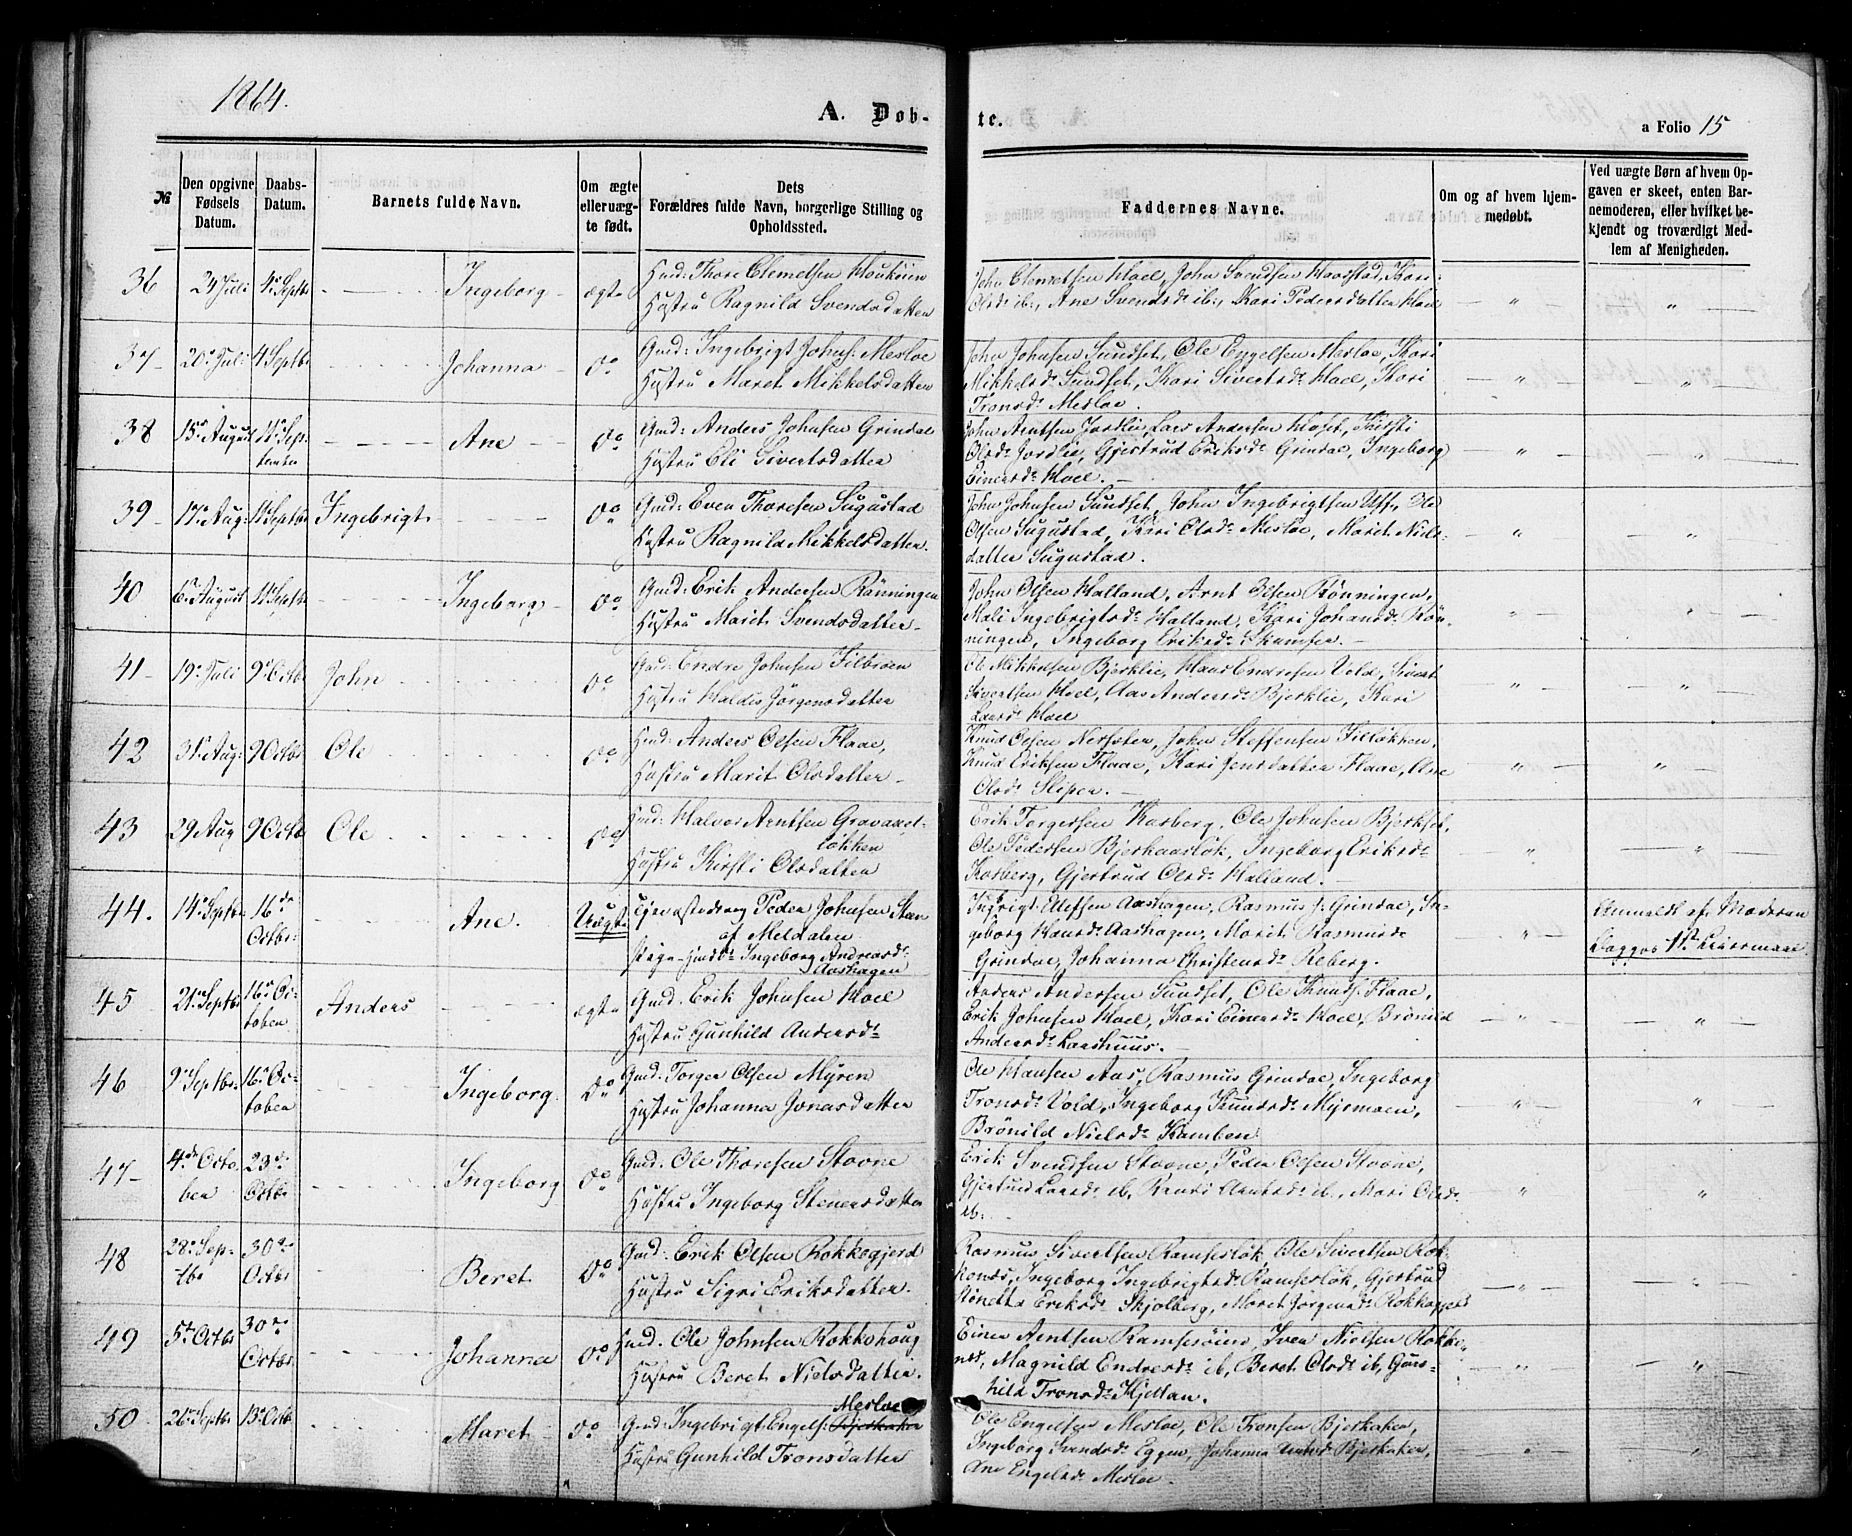 1864.
A. Døb-
te.
a Folio 15
№
Den opgivne
Fødsels
Datum.
Daabs-
Datum.
Barnets fulde Navn.
Om ægte
eller uæg-
te født.
Dets
Forældres fulde Navn, borgerlige Stilling og
Opholdssted.
Faddernes Navne.
Om og af hvem hjem-
medøbt.
Ved uægte Børn af hvem Op-
gaven er skeet, enten Bar-
nemoderen, eller hvilket be-
kjendt og troværdigt Med-
lem af Menigheden.
36 24 Juli 4de Septbr Ingeborg ægte Gmd: Thore Clemetsen
Hustru Ragnild Svendsdatter
John Clemetsen Hoel, John Svendsen Haarstad, Kari
Olsdr ib., Ane Svendsdr ib., Kari Pedersdatter Hoel
37 20de Juli 4 Septbr Johanna do Gmd: Ingebrigt Johns: Mesloe
Hustru Maret Mikkelsdatter
John Johnsen Sundset, Ole Engelsen Mesloe, Kari
Mikkelsdr Sundset, Kari Sivertsdr Hoel, Kari
Tronsdr Mesloe.
38 15de August 11te Sep-
tember
Ane do Gmd: Anders Johnsen Grindal
Hustru Eli Sivertsdatter
John Arntsen Jordlie, Lars Andersen Hoset, Kirsti
Olsdr Jordlie, Gjertrud Eriksdr Grindal, Ingeborg
Einersdr Hoel.
39 17de Aug: 11 Septbr Ingebrigt do Gmd: Even Thoresen Sugustad
Hustru Ragnild Mikkelsdatter.
John Johnsen Sundset, John Ingebrigtsen Uff, Ole
Olsen Sugustad, Kari Olsdr Mesloe, Marit Niels-
datter Sugustad.
40 6te August 11 Septbr Ingeborg do Gmd: Erik Andersen Rønningen
Hustru Marit Svendsdatter
John Olsen Halland, Arnt Olsen Rønningen,
Mali Ingebrigtsdr Halland, Kari Johansdr Røn-
ningen, Ingeborg Eriksdr Skamfer.
41 19de Juli 9de Octbr John do Gmd: Endre Johnsen
Hustru Haldis Jørgensdatter
Ole Mikkelsen Bjerklie, Hans Endresen Vold, Sivert
Sivertsen Hoel, Aas Andersdr Bjerklie, Kari
Larsdr Hoel
42 31te Aug: 9 Octbr Ole do Gmd: Anders Olsen Flaae,
Hustru Marit Olsdatter
Knud Olsen Nersæter, John Steffensen
Knud Eriksen Flaae, Kari Jensdatter Flaae, Ane
Olsdr Sliper.
43 29 Aug 9 Octbr Ole do Gmd: Halvor Arntsen Gravaas-
løkken
Hustru Kirsti Olsdatter
Erik Torgersen Kosberg, Ole Johnsen Bjerkset,
Ole Pedersen Bjerkaasløk, Ingeborg Eriksdr
Kosberg, Gjertrud Olsdr Halland.
44. 14de Septbr 16de
Octbr.
Ane. Uægte Tjenestedreng Peder Johnsen Steen
af Meldalen
Pige Ingeborg Andreasdr
Aashagen
Ingbrigt Ellefsen Aashagen, Rasmus J. Grindal, In-
geborg Hansdr Aashagen, Marit Rasmusdr
Grindal, Johanna Christensdr Reberg.
Anmeldt af Moderen
Begges 1ste Leiermaal
45 21de Septbr 16de Oc-
tober
Anders ægte Gmd: Erik Johnsen Hoel
Hustru Gunhild Andersdr
Anders Andersen Sundset, Ole Knuds. Flaae,
Erik Johnsen Hoel, Kari Einersdr Hoel, Brønild
Andersdr Laashuus.
46 9de Septbr. 16de Oc-
tober
Ingeborg. do Gmd: Torger Olsen Myren
Hustru Johanna Jonasdatter
Ole Hansen Aas, Rasmus Grindal, Ingeborg
Tronsdr Vold, Ingeborg Knudsdr Myrmoen,
Brønild Nielsdr Kamben
47 4de Octo-
ber
23de
Octbr
Ingeborg do Gmd: Ole Thoresen Stavne
Hustru Ingeborg Stenersdatter
Erik Svendsen Stavne, Peder Olsen Stavne,
Gjertrud Larsdr ib, Randi Arntsdr ib., Mari Olsdr
ib.
48 28de Sep-
tbr
30te
Octbr
Beret do Gmd: Erik Olsen Rokkogjerd
Hustru Sigri Eriksdatter.
Rasmus Sivertsen Ramsesløk, Ole Sivertsen Rok-
Ingeborg Ingebrigtsdr Ramsesløk, Gjertrud
Eriksdr Skjolberg, Maret Jørgensdr
49 5te Octbr 30te
Octbr
Johanna do Gmd: Ole Johnsen Rokkohoug
Hustru Beret Nielsdatter.
Einer Arntsen Ramsesøien, Iver Nielsen Rokko-
nes, Magnild Endresdr ib, Beret Olsdr ib, Gun-
hild Tronsdr Kjellan.
50 26de Septbr 13de Octbr Maret do Gmd: Ingebrigt Engels: Bjerkaker
Mesloe
Hustru Gunhild Tronsdatter
Ole Engelsen Mesloe, Ole Tronsen Bjerkaker,
Ingeborg Svendsdr Eggen, Johanna Bjerkaker,
Ane Engelsdr Mesloe.